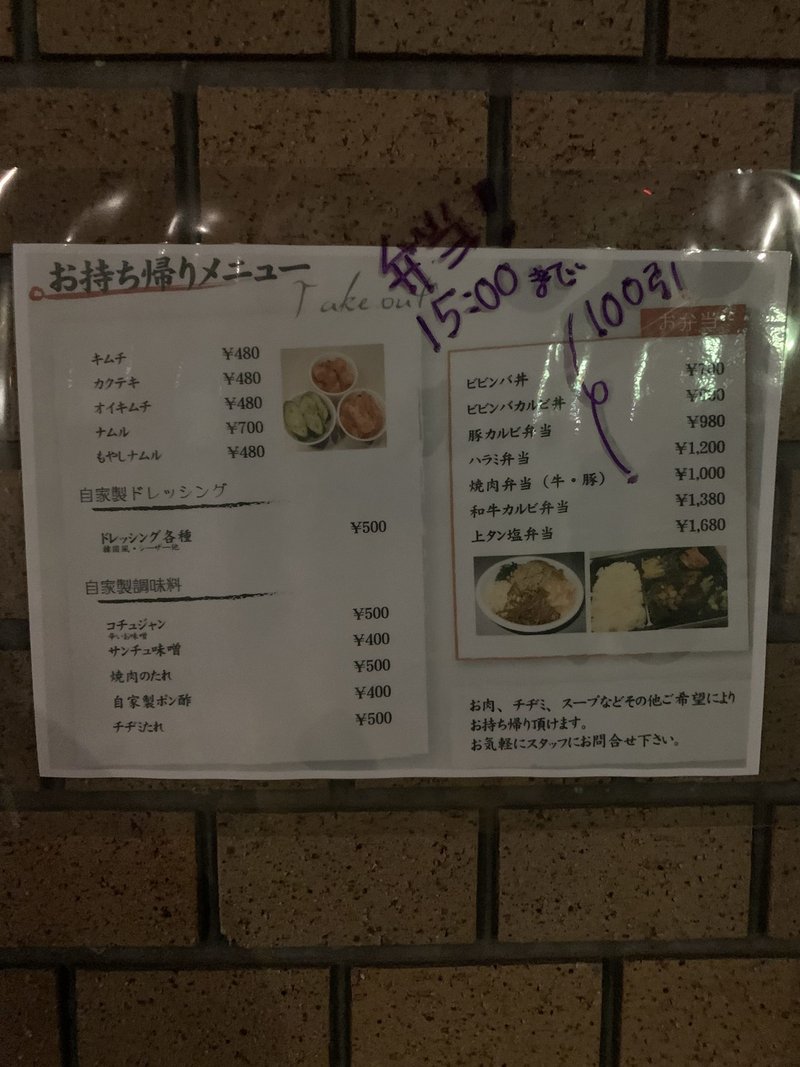 お持ち帰りメニュー
Take out
弁当!
15:00 まで
100引
キムチ ¥480
カクテキ ¥480
オイキムチ ¥480
ナムル ¥700
もやしナムル ¥480
自家製ドレッシング
ドレッシング各種 ¥500
韓国風・シーザー他
自家製調味料
コチュジャン ¥500
辛いお味噌
サンチュ味噌 ¥400
焼肉のたれ ¥500
自家製ポン酢 ¥400
チヂミたれ ¥500
お弁当
ビビンバ丼 ¥700
ビビンバカルビ丼
豚カルビ弁当 ¥980
ハラミ弁当 ¥1,200
焼肉弁当（牛・豚） ¥1,000
和牛カルビ弁当 ¥1,380
上タン塩弁当 ¥1,680
お肉、チヂミ、スープなどその他ご希望により
お持ち帰り頂けます。
お気軽にスタッフにお問合せ下さい。